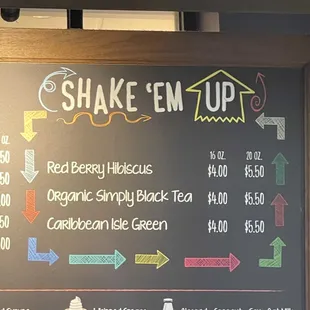 SHAKE 'EM UP
oz. 16 oz. 20 oz.
50 Red Berry Hibiscus $4.00 $5.50
50
00 Organic Simply Black Tea $4.00 $5.50
50 Caribbean Isle Green $4.00 $5.50
00